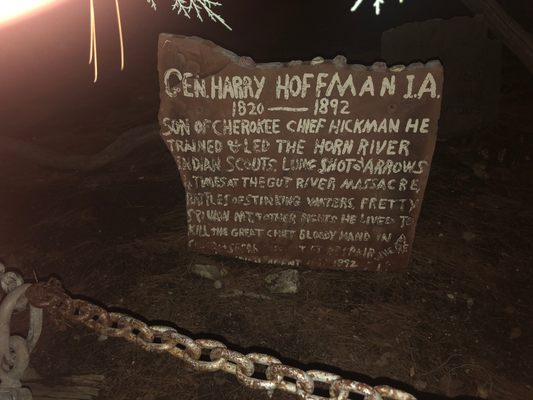 GEN. HARRY HOFFMAN I.A.
1820 — 1892
SON OF CHEROKEE CHIEF HICKMAN HE
TRAINED & LED THE HORN RIVER
INDIAN SCOUTS. LUNG SHOT & ARROWS
TIMES AT THE GUT RIVER MASSACRE,
BATTLES OF STINKING WATERS, FRETTY
MT. & OTHER HE LIVED TO
KILL THE GREAT CHIEF BLOODY HAND IN
1892